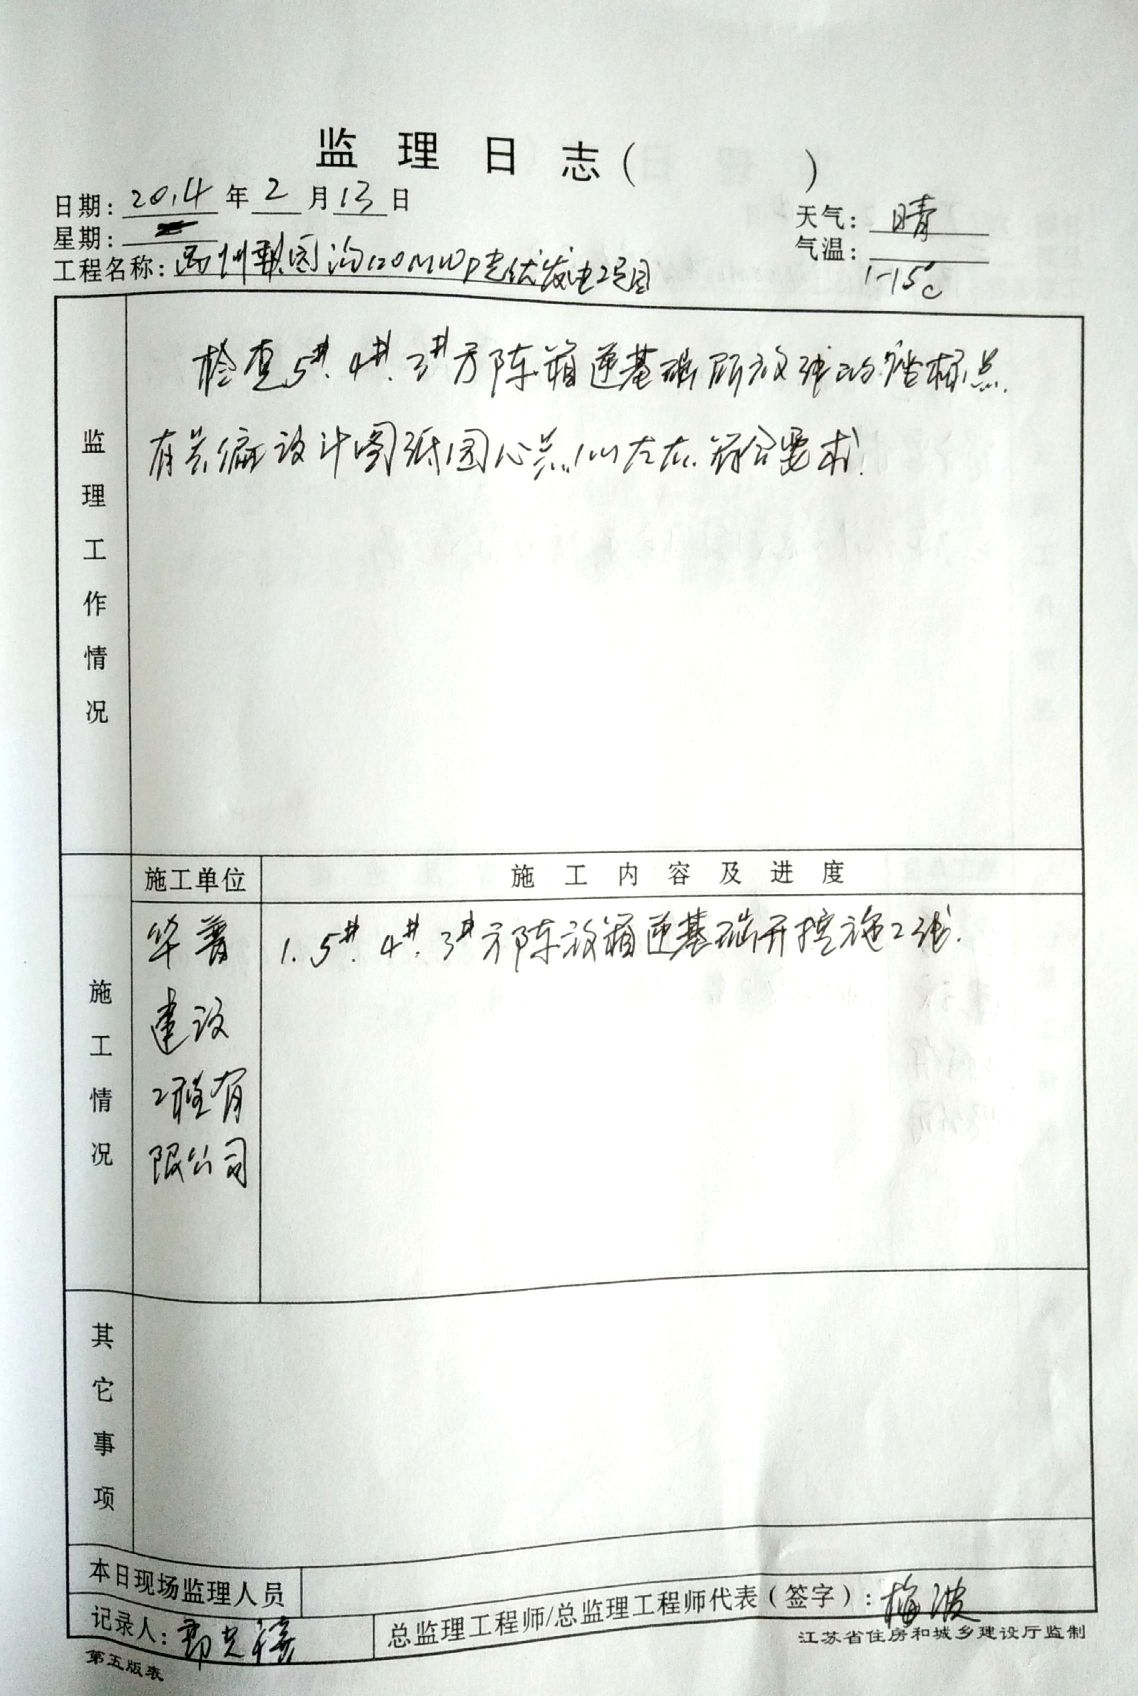 监理日志( )
日期: 2014年2月13日
天气: 晴
星期:
气温: 1-15℃
工程名称: 梨园沟120MWp光伏发电项目
监理工作情况
检查5#.4#.3#方阵箱逆基础所放线的坐标点.
有关 设计图纸 点 左右.符合要求.
施工情况
施工单位
施工内容及进度
华普
建设
工程有
限公司
1. 5#.4#.3#方阵放箱逆基础开挖施工线.
其它事项
本日现场监理人员
记录人:
总监理工程师/总监理工程师代表(签字): 梅波
第五版表
江苏省住房和城乡建设厅监制